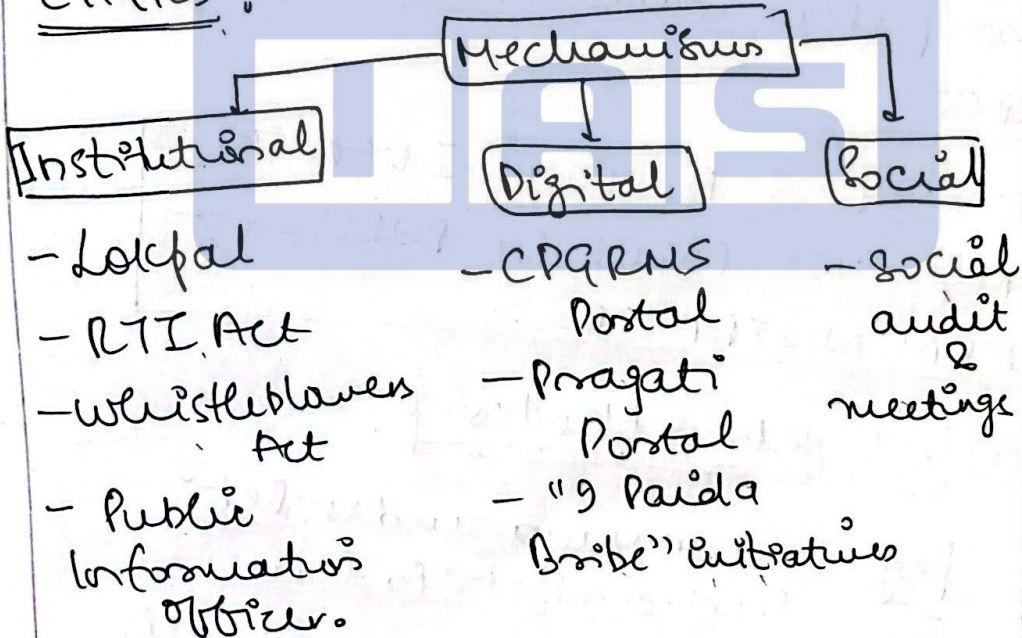 Mechanisms
IAS
Institutional
Digital
Social
- Lokpal
- RTI Act
- Whistleblowers
Act
- Public
Information
Officer.
- CPGRMS
Portal
- Pragati
Portal
- "I Paid a
Bribe" initiatives
- social
audit
&
meetings